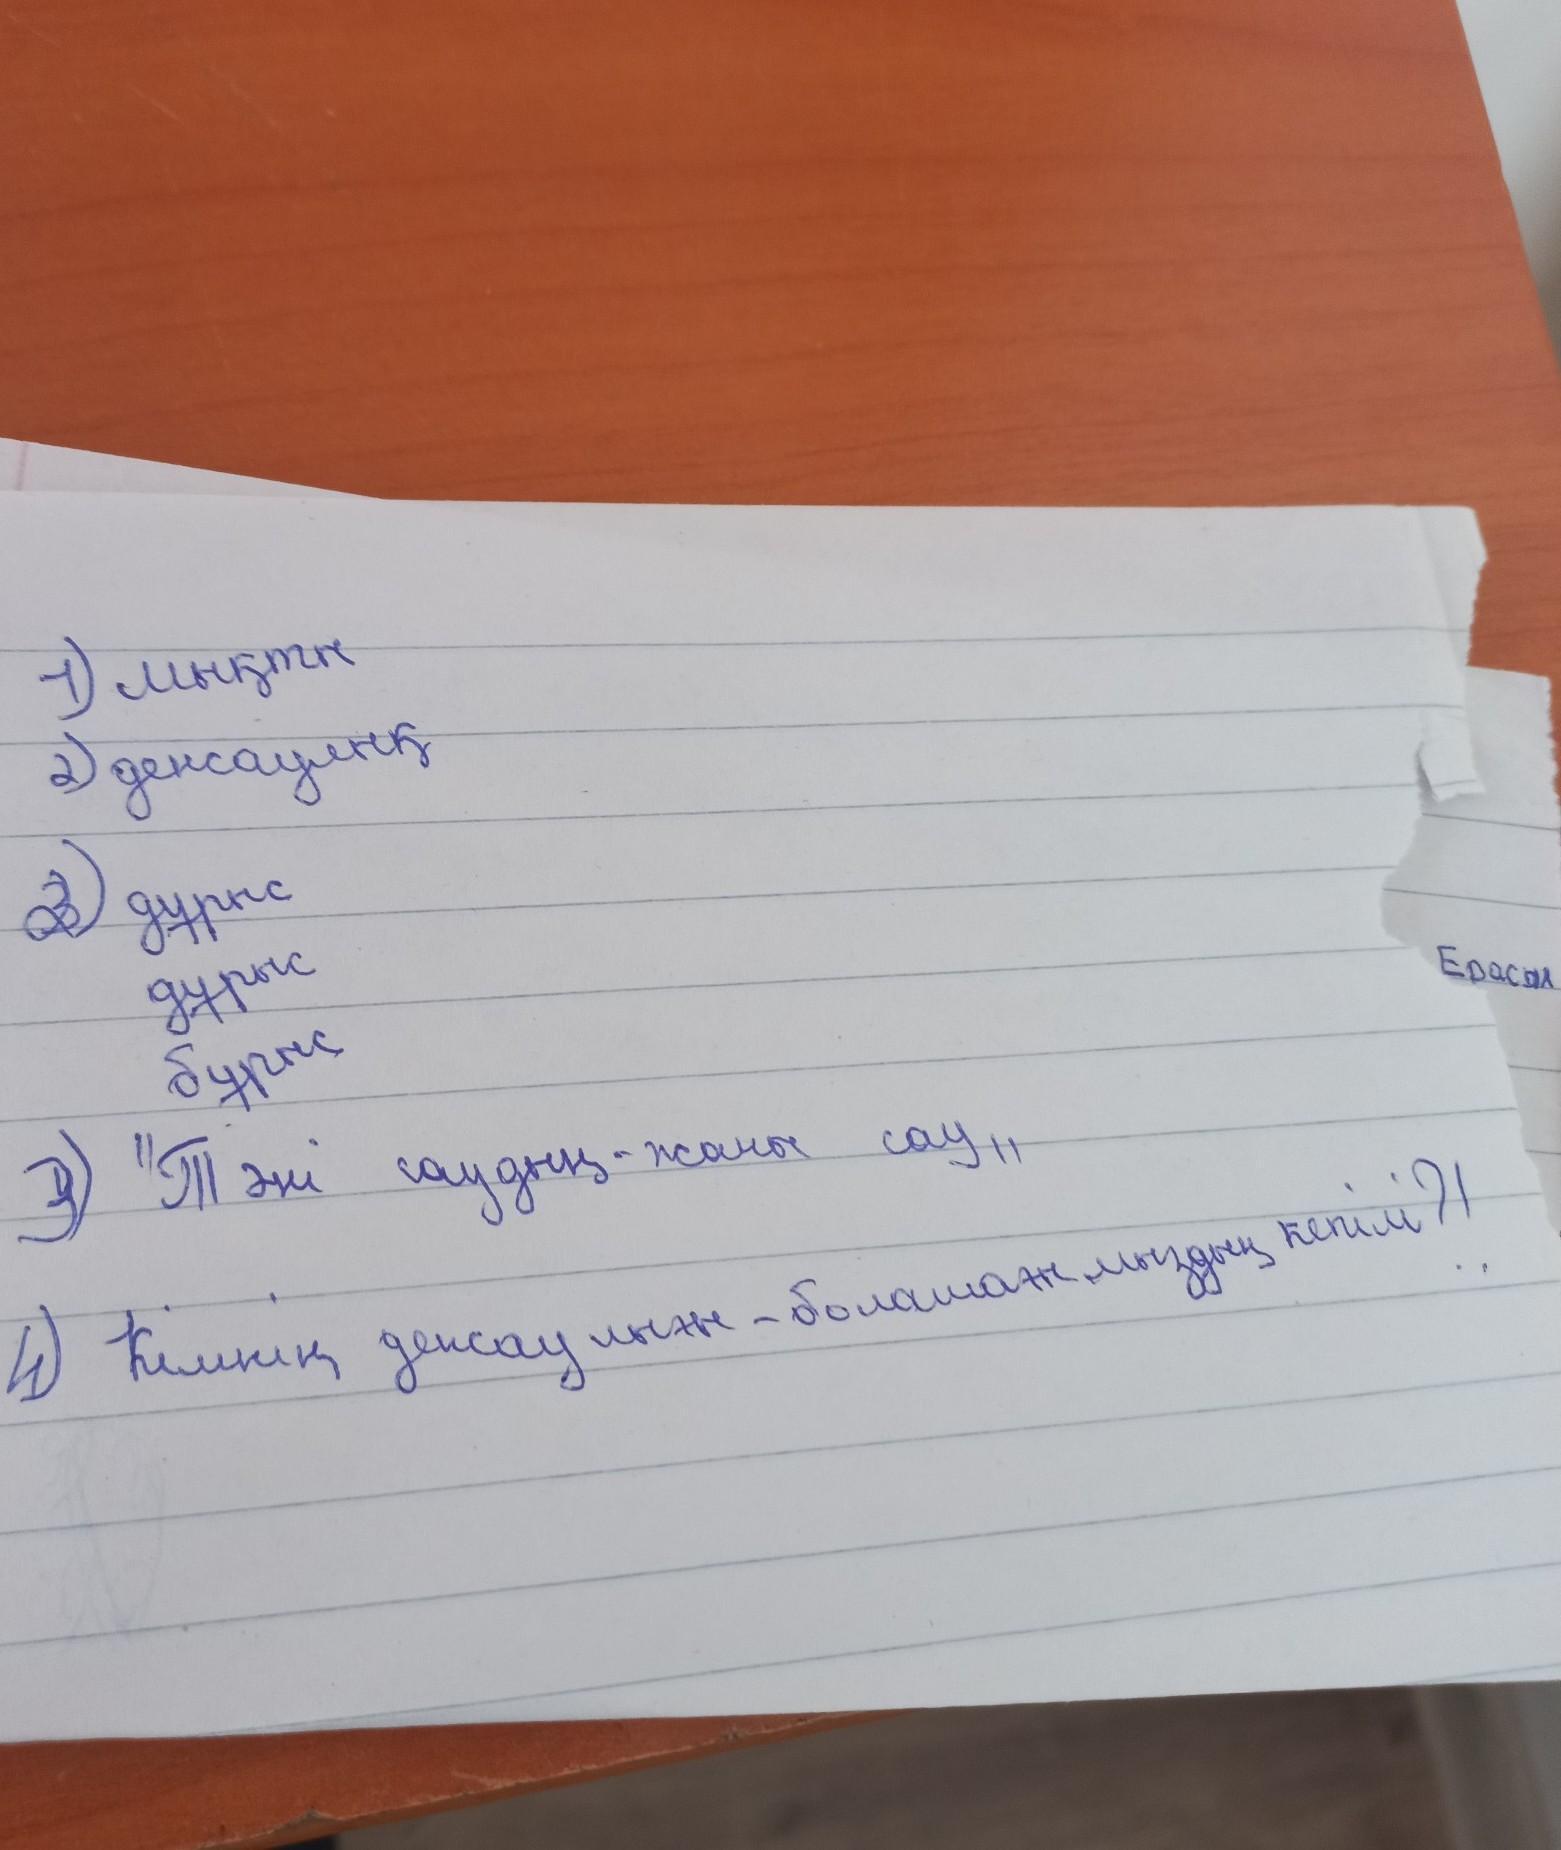 1) мықты
2) денсаулық
2) дұрыс
дұрыс
бұрыс
3) "Тәні саудың-жаны сау"
4) Кімнің денсаулығы-болашағымыздың кепілі?!
Ерасыл